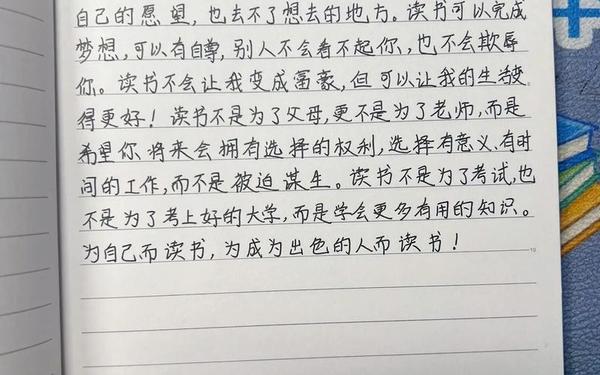 自己的愿望，也去不了想去的地方。读书可以完成
梦想，可以有自尊，别人不会看不起你，也不会欺辱
你。读书不会让我变成富豪，但可以让我的生活变
得更好！读书不是为了父母，更不是为了老师，而是
希望你将来会拥有选择的权利，选择有意义、有时
间的工作，而不是被迫谋生。读书不是为了考试，也
不是为了考上好的大学，而是学会更多有用的知识。
为自己而读书，为成为出色的人而读书！